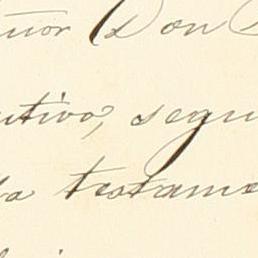 ñor Don
utivo, segu
la testame